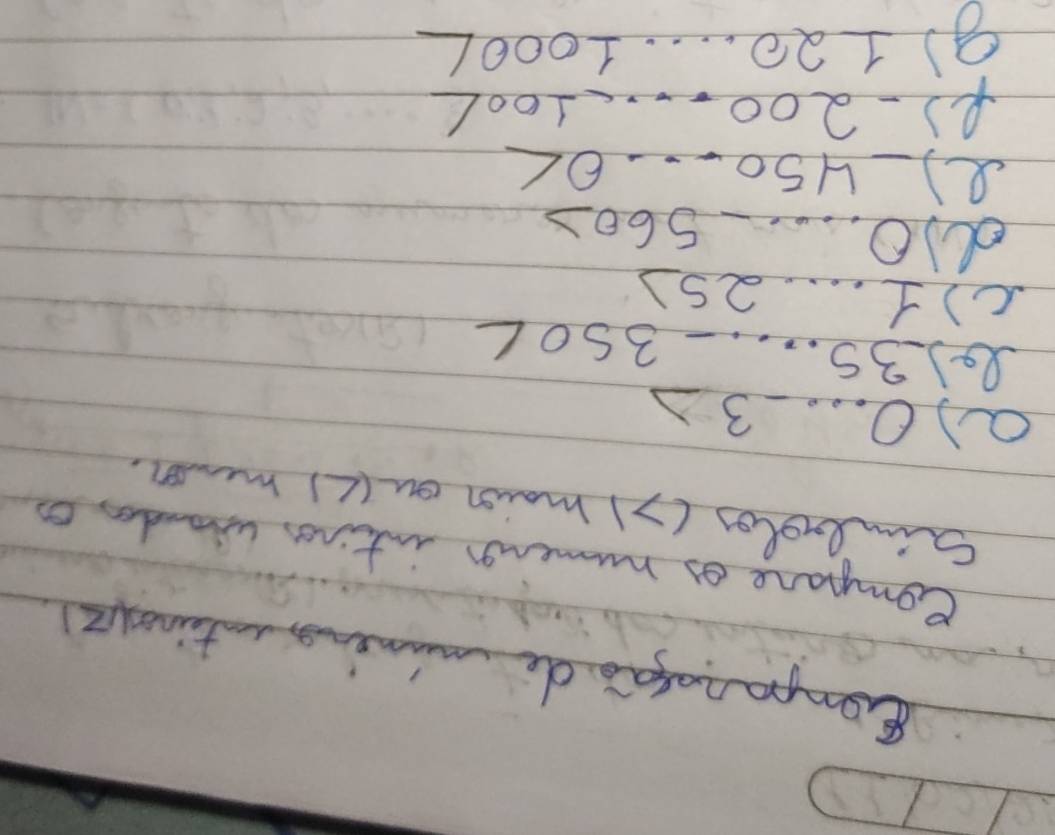 Comparação de números inteiros (Z).
Compare os numeros inteiros usando os
símbolos (>) maior ou (<) menor.
a) 0....-3 >
b) 35.....-350 <
c) 1.....25 >
d) 0.....-560 >
e) -450....0 <
f) -200....-100 <
g) 120....1000 <